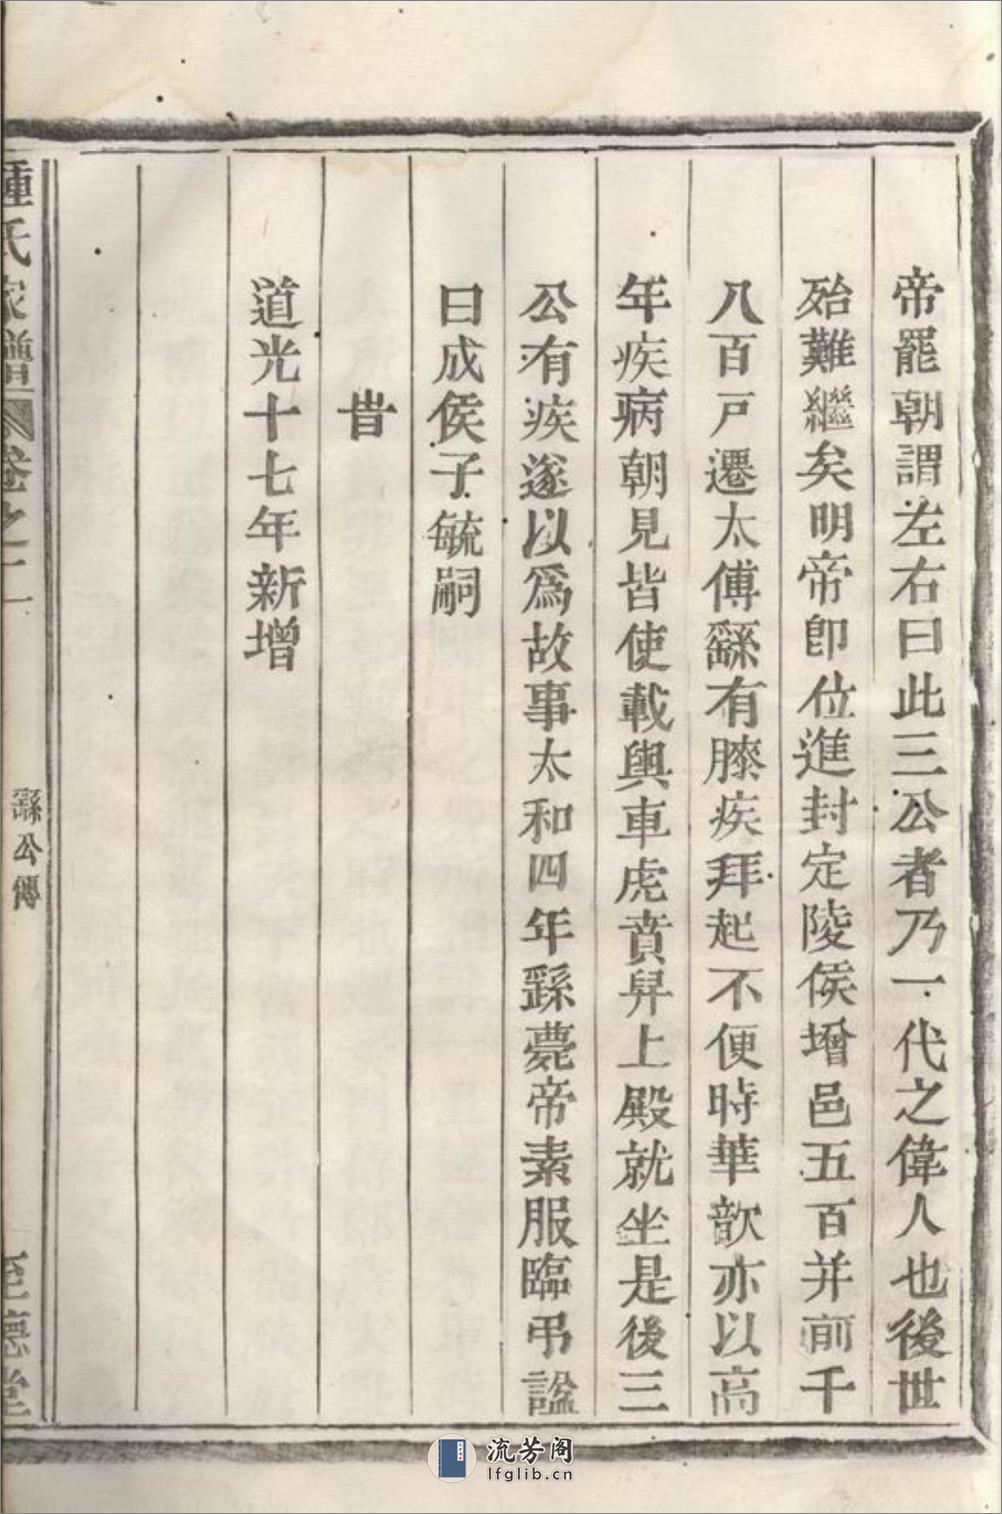 帝罷朝謂左右曰此三公者乃一代之偉人也後世
殆難繼矣明帝卽位進封定陵侯增邑五百并前千
八百戸遷太傅繇有膝疾拜起不便時華歆亦以高
年疾病朝見皆使載輿車虎賁舁上殿就坐是後三
公有疾遂以爲故事太和四年繇薨帝素服臨弔謚
曰成侯子毓嗣
旹
道光十七年新增
鍾氏家譜 卷之二
繇公傳
至德堂
流芳阁
lfglib.cn